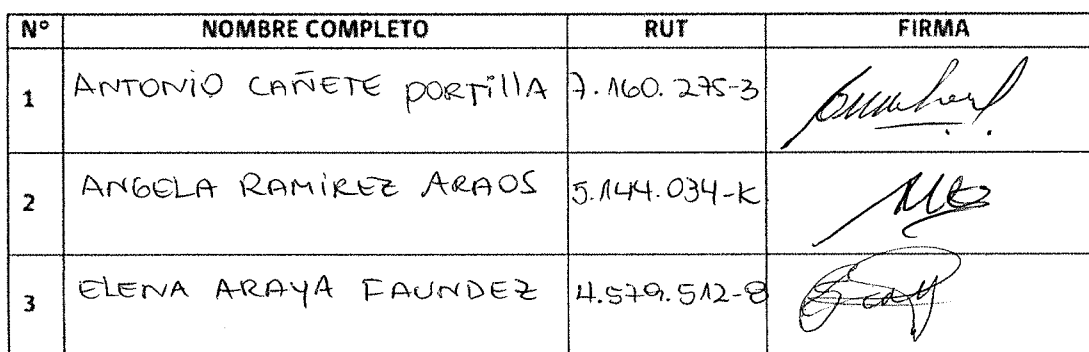 Nº NOMBRE COMPLETO RUT FIRMA
1 ANTONIO CAÑETE PORTILLA 7.160.275-3
2 ANGELA RAMIREZ ARAOS 5.144.034-K
3 ELENA ARAYA FAUNDEZ 4.579.512-8